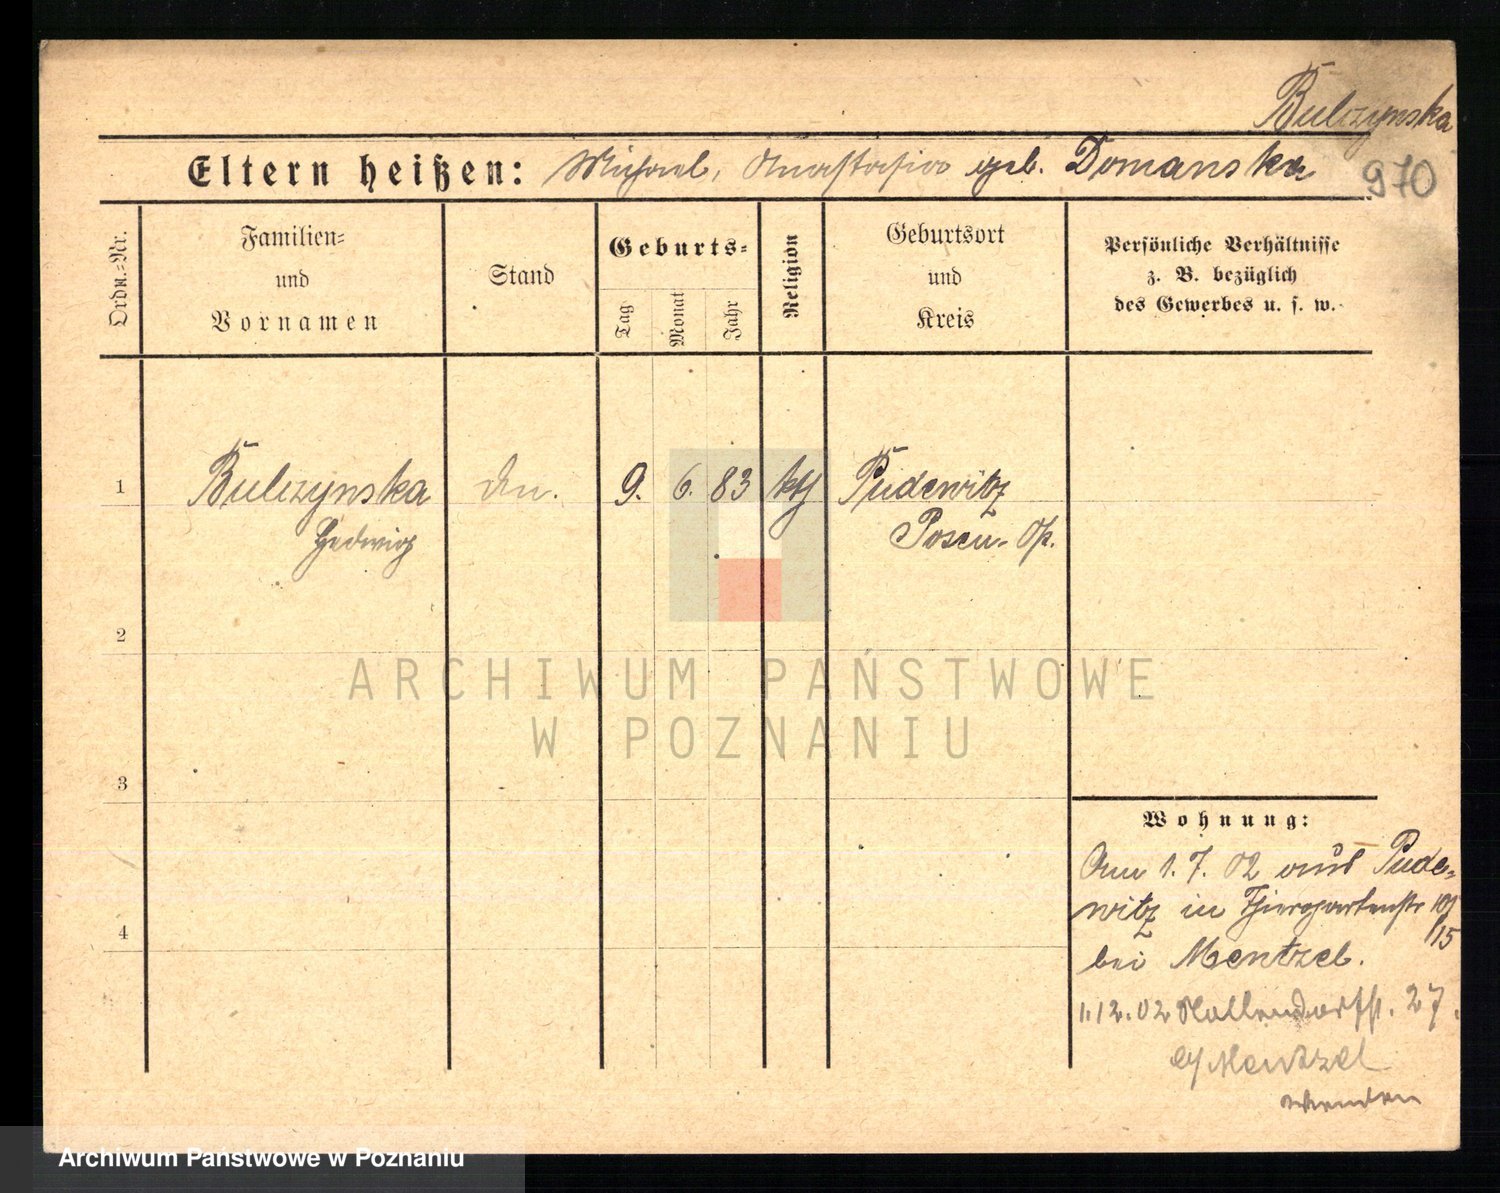 Bulczynska
Eltern heißen: Michael, Anastasia geb. Domanska
970
Ordn.-Nr.
Familien-
und
Vornamen
Stand
Geburts-
Tag
Monat
Jahr
Religion
Geburtsort
und
Kreis
Persönliche Verhältnisse
z. B. bezüglich
des Gewerbes u. s. w.
1 Bulczynska 9. 6. 83 kth Pudewitz
Hedwig Posen- Op.
2
3
4
Wohnung:
Am 1. 7. 02 aus Pude-
witz in Thiergartenstr
15
bei Mentzel.
1.12.02 Nollendorfst. 27.
Mentzel
wenden
ARCHIWUM PAŃSTWOWE
W POZNANIU
Archiwum Państwowe w Poznaniu